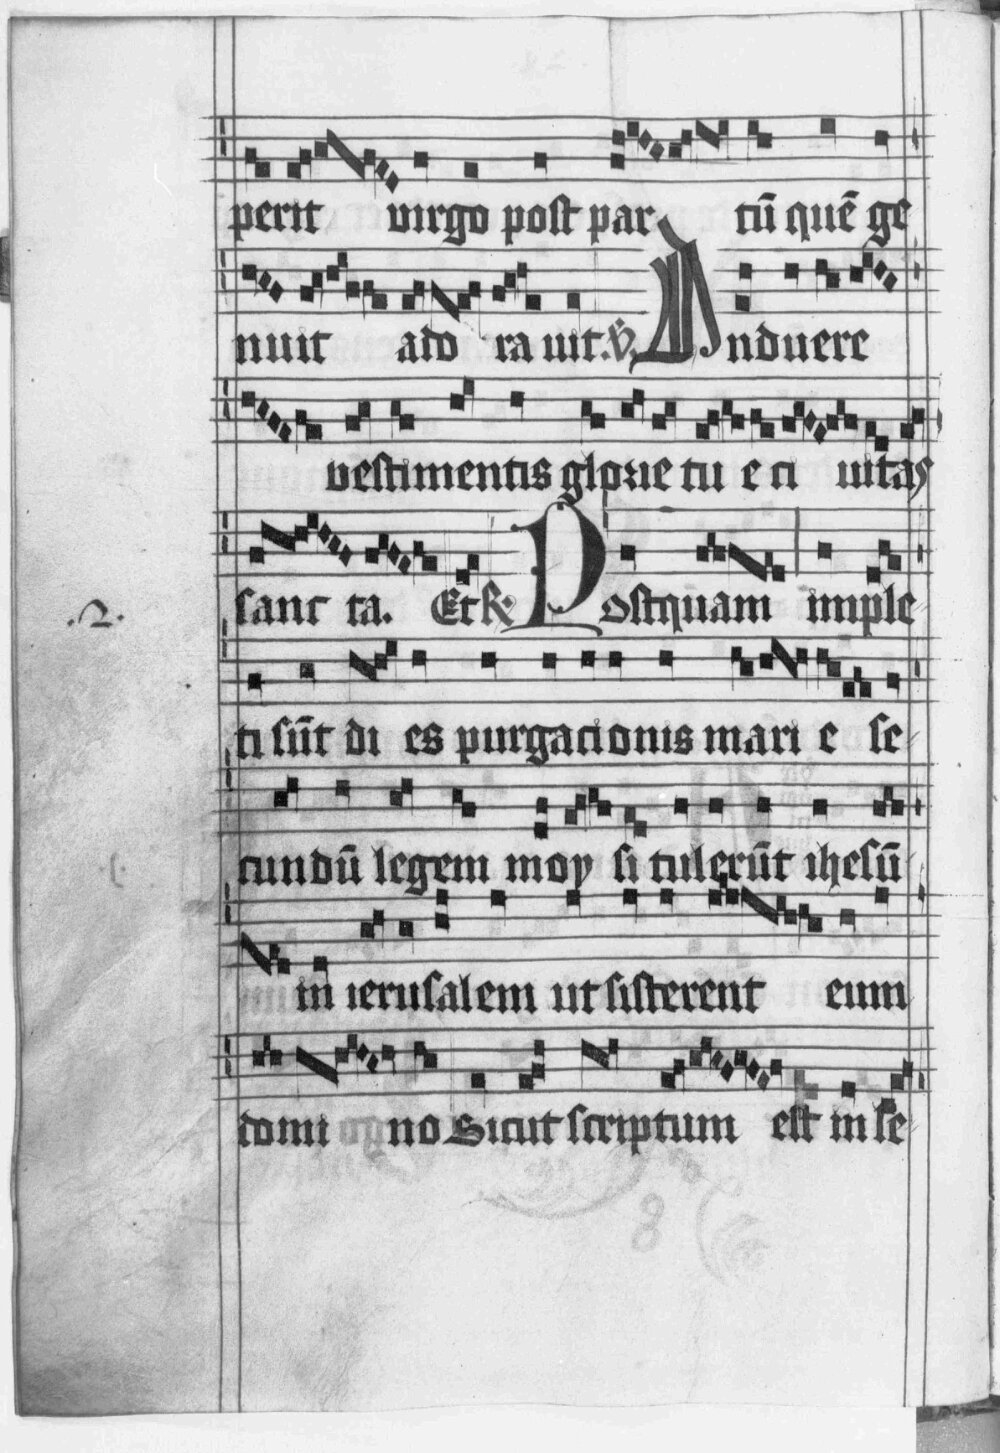 perit virgo post par tū quē ge
nuit ado ra uit. V̄. Induere
vestimentis glorie tu e ci uitas
sanc ta. Et R. Postquam imple
.2.
ti sūt di es purgacionis mari e se
cundū legem moy si tulerūt ihesū
in ierusalem ut sisterent eum
domi no Sicut scriptum est in le
8